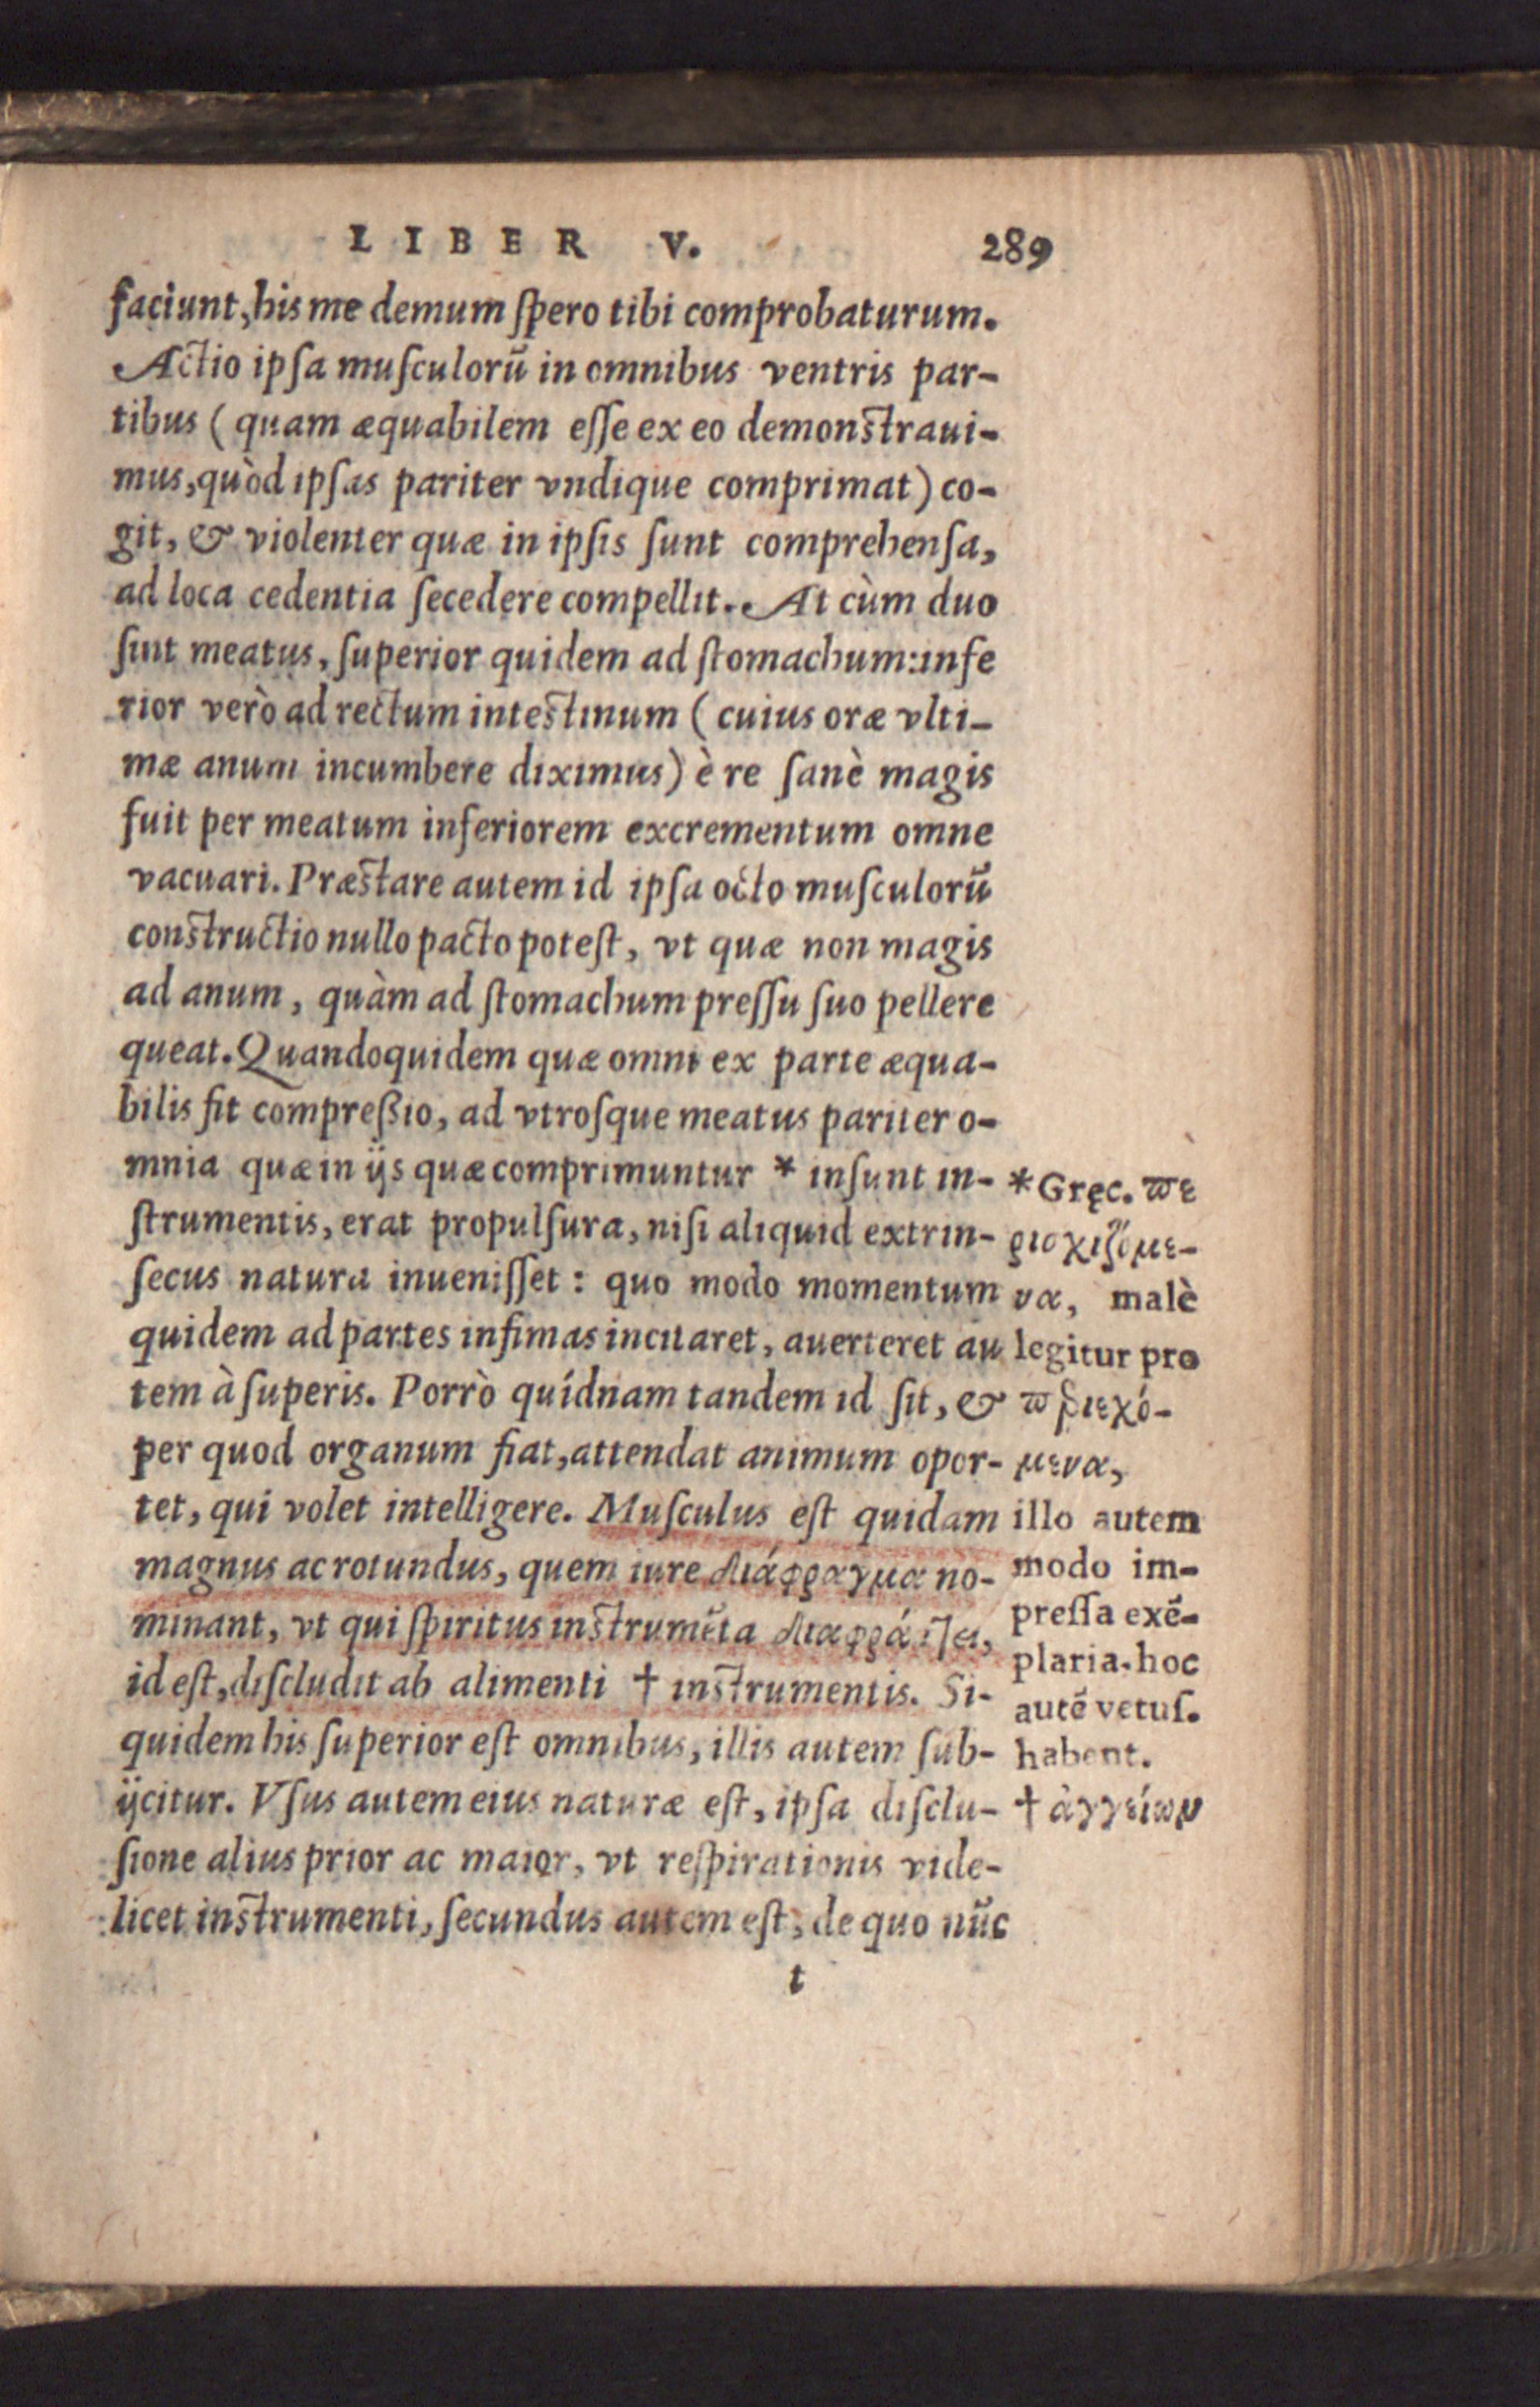 LIBER V. 289
faciunt, his me demum ſpero tibi comprobaturum.
Actio ipſa muſculorū in omnibus ventris par-
tibus (quam æquabilem eſſe ex eo demonſtraui-
mus, quòd ipſas pariter vndique comprimat) co-
git, & violenter quæ in ipſis ſunt comprehenſa,
ad loca cedentia ſecedere compellit. At cùm duo
ſint meatus, ſuperior quidem ad ſtomachum: infe
rior verò ad rectum inteſtinum (cuius oræ vlti-
mæ anum incumbere diximus) è re ſanè magis
fuit per meatum inferiorem excrementum omne
vacuari. Præſtare autem id ipſa octo muſculorū
conſtructio nullo pacto poteſt, vt quæ non magis
ad anum, quàm ad ſtomachum preſſu ſuo pellere
queat. Quandoquidem quæ omni ex parte æqua-
bilis fit compreßio, ad vtroſque meatus pariter o-
mnia quæ in ijs quæ comprimuntur * inſunt in-
ſtrumentis, erat propulſura, niſi aliquid extrin-
ſecus natura inueniſſet: quo modo momentum
quidem ad partes infimas incitaret, auerteret au
tem à ſuperis. Porrò quídnam tandem id ſit, &
per quod organum fiat, attendat animum opor-
tet, qui volet intelligere. Muſculus eſt quidam
magnus ac rotundus, quem iure διάφραγμα no-
minant, vt qui ſpiritus inſtrumēta διαφράττει,
id eſt, diſcludit ab alimenti † inſtrumentis. Si-
quidem his ſuperior eſt omnibus, illis autem ſub-
ijcitur. Vſus autem eius naturæ eſt, ipſa diſclu-
ſione alius prior ac maior, vt reſpirationis vide-
licet inſtrumenti, ſecundus autem eſt, de quo nūc
t
* Gręc. πε
ριοχιζόμε-
να, malè
legitur pro
περιεχό-
μενα,
illo autem
modo im-
preſſa exē-
plaria. hoc
autē vetuſ.
habent.
† ἀγγείων